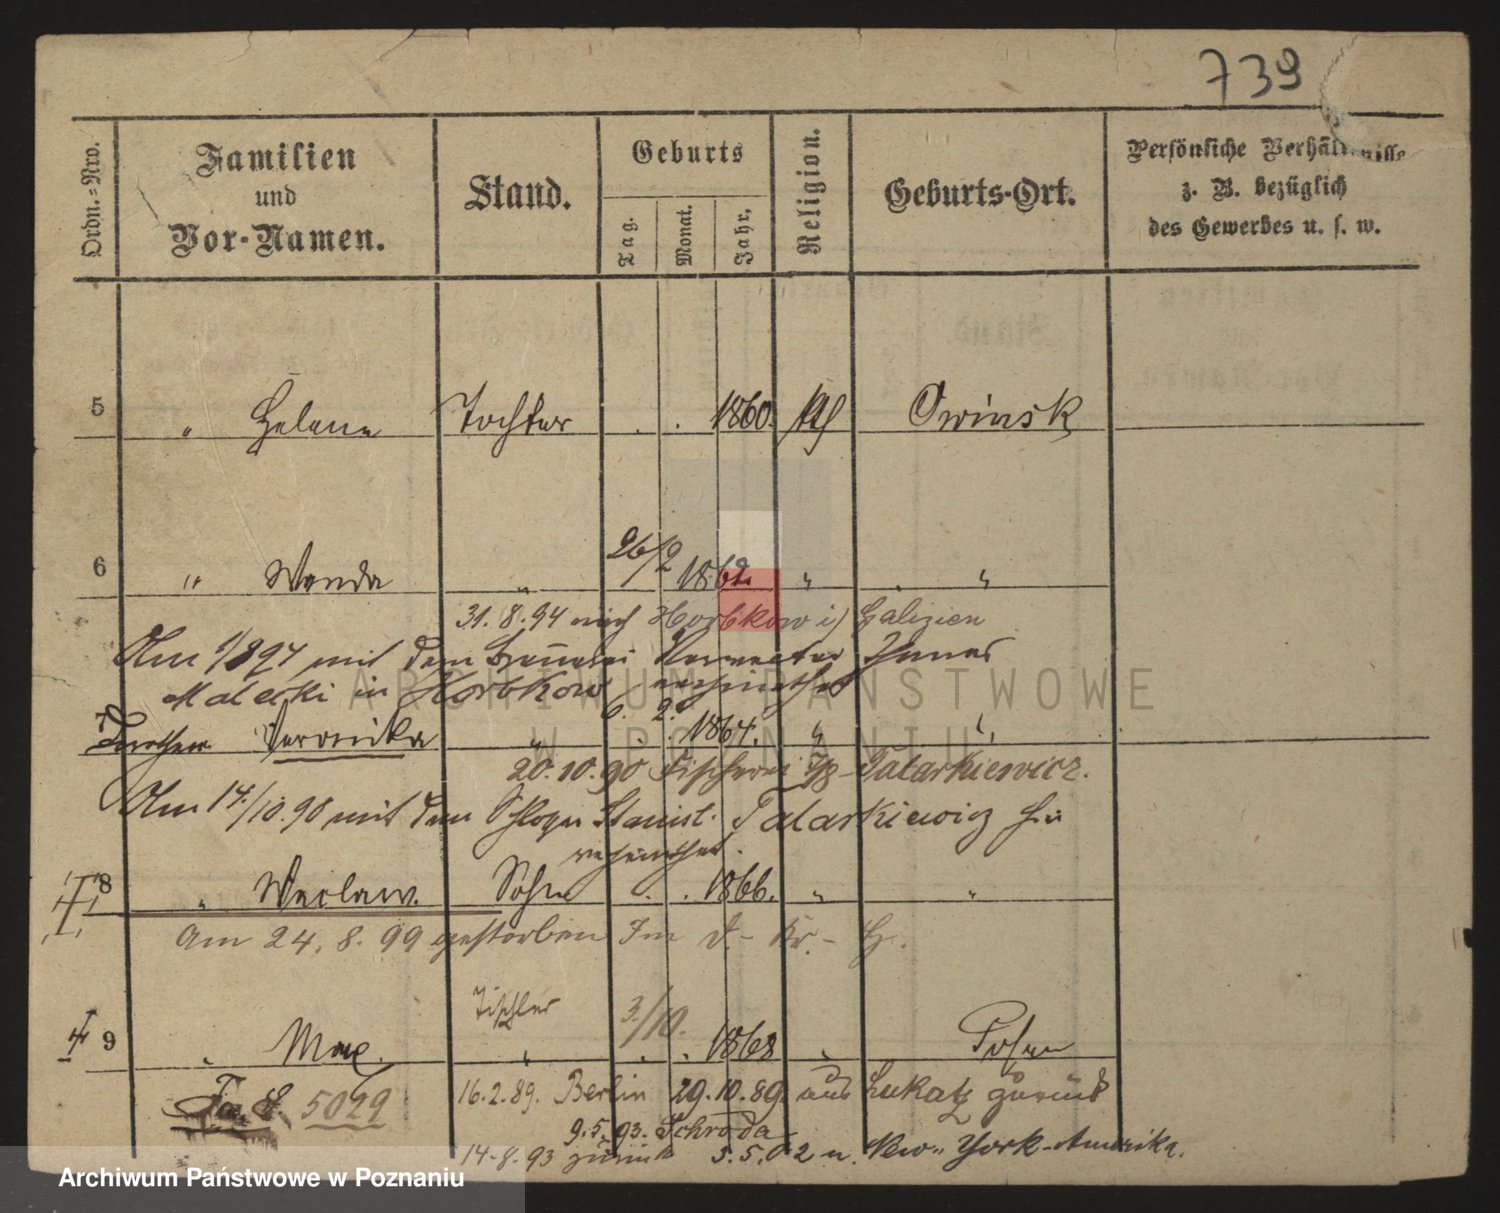 739
Ordn.-Nro.
Familien
und
Vor-Namen.
Stand.
Geburts
Tag.
Monat.
Jahr.
Religion.
Geburts-Ort.
Persönliche Verhältnisse
z. B. bezüglich
des Gewerbes u. s. w.
5 " Helene Tochter . . 1860. kth Owinsk
6 " Wanda " 26/2 1862. " "
31. 8. 94 nach Horbkow i/ Galizien
Am 1/8 94 mit dem Brauerei Verwalter
Malecki in Horbkow verheirathet
6. 2.
7 Veronika " . . 1864. " "
20. 10. 90 Tatarkiewicz.
Am 14./10. 90 mit dem Stanisl. Tatarkiewicz
verheirathet.
8 " Waclaw. Sohn . . 1866. " "
Am 24. 8. 99 gestorben Im
Tischler 3./10.
9 " Max. " . . 1868 " Posen
Fa. 5029
16. 2. 89. Berlin 29. 10. 89 aus Lukatz zurück
9. 5. 93. Schroda
14. 8. 93 zurück 5. 5. 02 n. New-York-Amerika.
ARCHIWUM PAŃSTWOWE
W POZNANIU
Archiwum Państwowe w Poznaniu